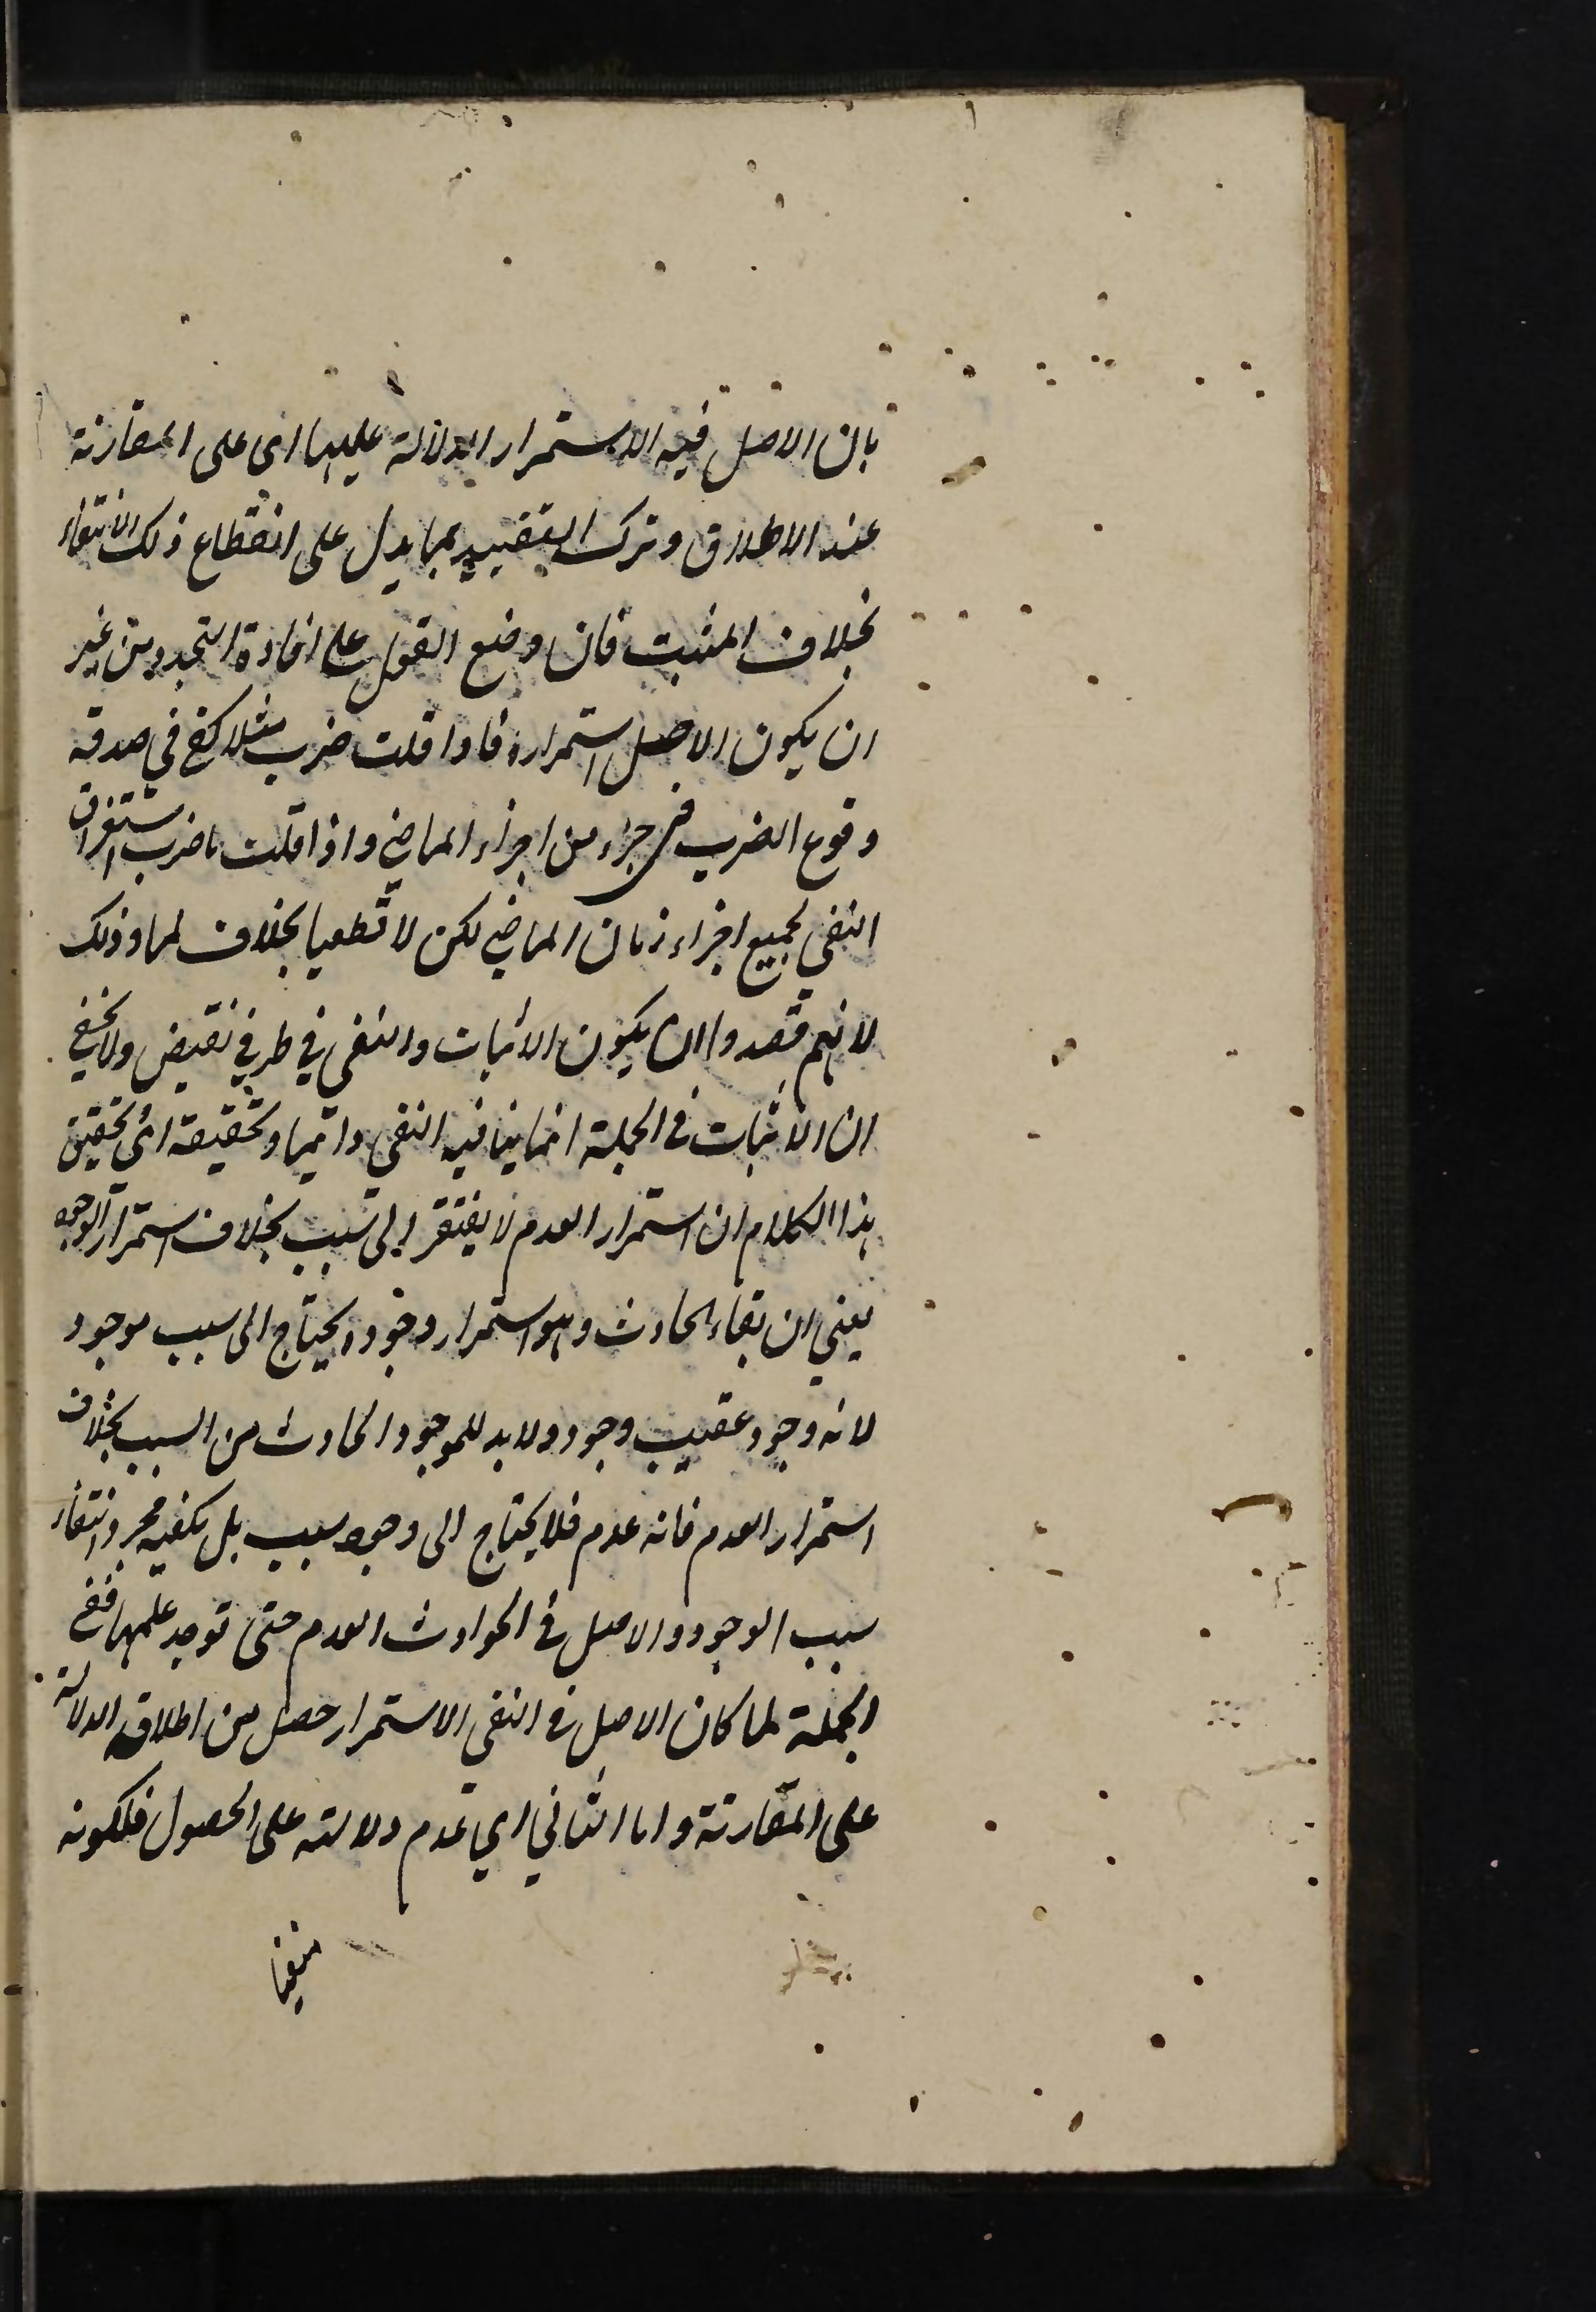 بان الاصل فيه الاستمرار الدلالة عليها اى على المقارنة
عند الاطلاق وترك التقييد بما يدل على انقطاع ذلك الانتفاء
بخلاف المثبت فان وضع الفعل على افادة التجدد من غير
ان يكون الاصل استمراره فاذا قلت ضرب مثلا كفى في صدقه
وقوع الضرب في جزء من اجزاء الماضي واذا قلت ما ضرب استغراق
النفي لجميع اجزاء زمان الماضي لكن لا قطعيا بخلاف لما وذلك
لانهم قصدوا ان يكون الاثبات والنفي في طرفي نقيض ولا يخفى
ان الاثبات في الجملة انما ينافيه النفي دائما وتحقيقه اى تحقيق
هذا الكلام ان استمرار العدم لا يفتقر الى سبب بخلاف استمرار الوجود
يعني ان بقاء الحادث وهو استمرار وجوده يحتاج الى سبب موجود
لانه وجود عقيب وجود ولا بد للموجود الحادث من السبب بخلاف
استمرار العدم فانه عدم فلا يحتاج الى وجود سبب بل يكفيه مجرد انتفاء
سبب الوجود والاصل في الحوادث العدم حتى توجد عللها ففي
الجملة لما كان الاصل في النفي الاستمرار حصل من اطلاقه الدلالة
على المقارنة واما الثاني اي عدم دلالته على الحصول فلكونه
منفيا